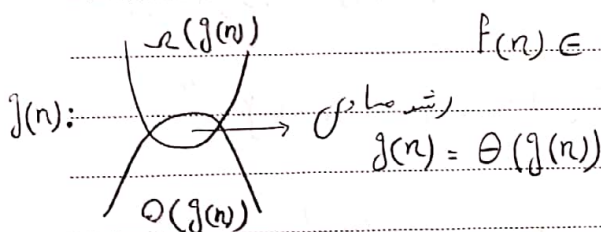 Ω(g(n))
f(n) ∈
g(n):
رشد مساوی
g(n) = θ(g(n))
O(g(n))